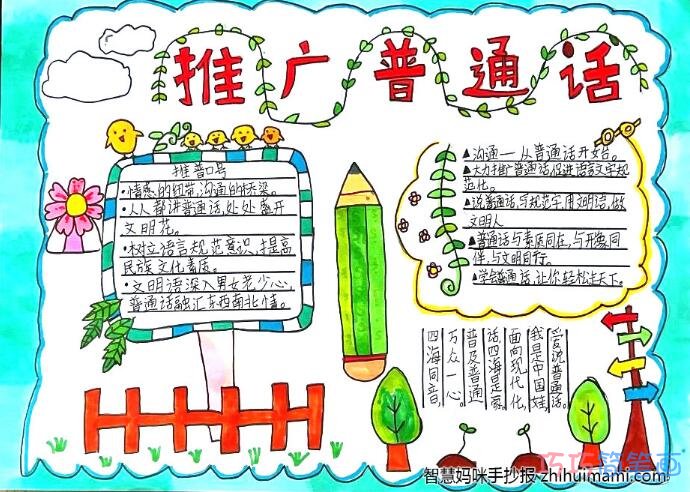 推广普通话
推普口号
•情感的纽带,沟通的桥梁。
•人人都讲普通话,处处盛开
文明花。
•树立语言规范意识,提高
民族文化素质。
•文明语深入男女老少心,
普通话融汇东西南北情。
▲沟通——从普通话开始。
▲大力推广普通话,促进语言文字规
范化。
▲说普通话,写规范字,用文明语,做
文明人
▲普通话与素质同在,与形象同
伴,与文明同行。
▲学会普通话,让你轻松走天下。
爱说普通话。
我是中国娃,
面向现代化,
话,四海是家,
普及普通
万众一心。
四海同音,
智慧妈咪手抄报-zhihuimami.com
巧巧简笔画